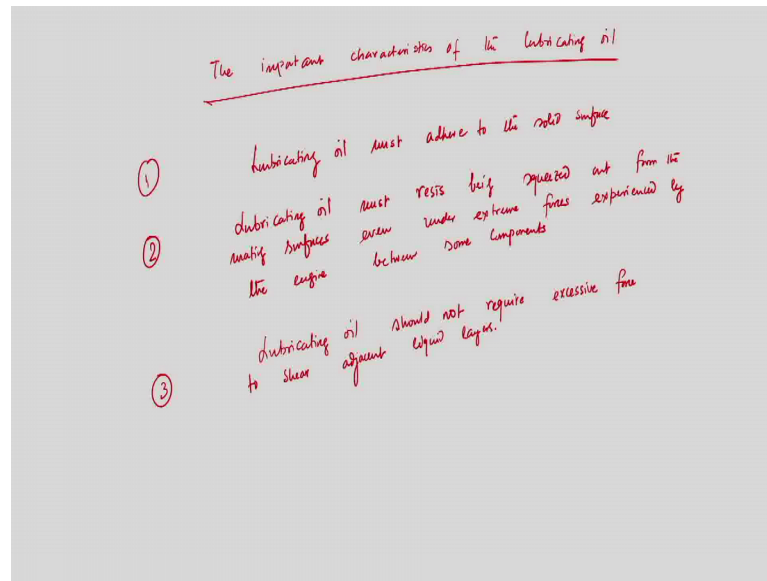 The important characteristics of the lubricating oil
① Lubricating oil must adhere to the solid surface
② Lubricating oil must resis being squeezed out from the
mating surfaces even under extreme forces experienced by
the engine between some components
③ Lubricating oil should not require excessive force
to shear adjacent liquid layers.